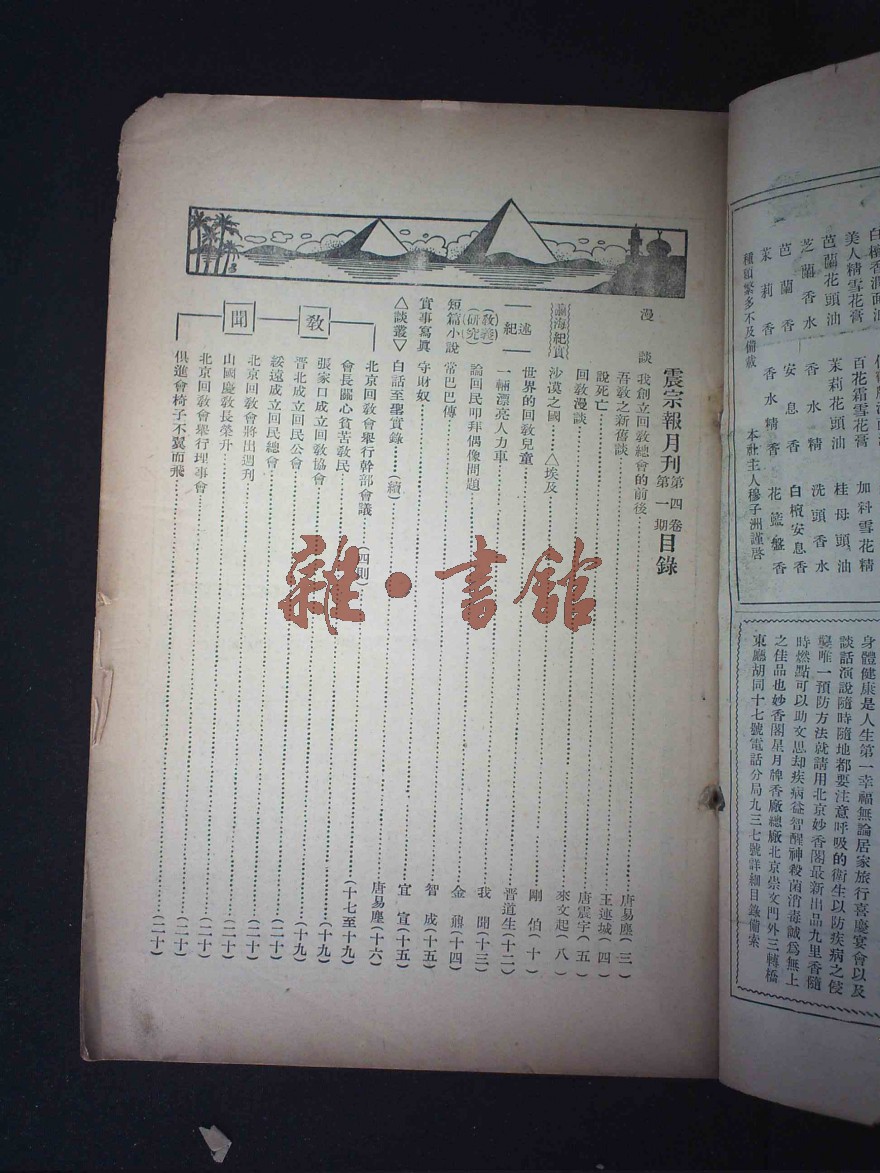 震宗報月刊第四卷第一期目錄
漫談
我創立回教總會的前後 唐易塵(三)
吾敎之新舊談 王連城(四)
說死亡 唐震宇(五)
回敎漫談 來文起(八)
瀛海紀實
沙漠之國 △埃及 剛伯(十)
紀述
世界的回敎兒童 晋道生(十二)
一輛漂亮人力車 我聞(十三)
(敎義)(研究)
論回民叩拜偶像問題 金鼎(十四)
短篇小說
常巴巴傳 智成(十五)
實事寫眞
守財奴 宜宣(十五)
△談叢▽
白話至聖實錄……(續) 唐易塵(十六)
敎聞
北京回敎會舉行幹部會議(四則) (十七至十九)
會長關心貧苦敎民 (十九)
張家口成立回敎協會 (十九)
晋北成立回民公會 (二十)
綏遠成立回民總會 (二十)
北京回敎會將出週刊 (二十)
山國慶敎長榮升 (二十)
北京回敎會舉行理事會 (二十)
俱進會椅子不翼而飛 (二十)
雜·書館
白檀香潤面油
美人精雪花膏 百花霜雪花膏 加料雪花精
芭蘭花頭油 茉莉花頭油 桂母頭油
芝蘭香水 香水精 洗頭香水
芭蘭香 安息香 白檀安息香
茉莉香 香水精 花籃盤香
種類繁多不及備載 本社主人穆子洲謹啓
身體健康是人生第一幸福無論居家旅行喜慶宴會以及
談話演說隨時隨地都要注意呼吸的衛生以防疾病之侵
襲唯一預防方法就請用北京妙香閣最新出品九里香隨
時燃點可以助文思却疾病益智醒神殺菌消毒誠爲無上
之佳品也妙香閣星月牌香廠總廠北京崇文門外三轉橋
東廳胡同十七號電話分局九三七號詳細目錄備索